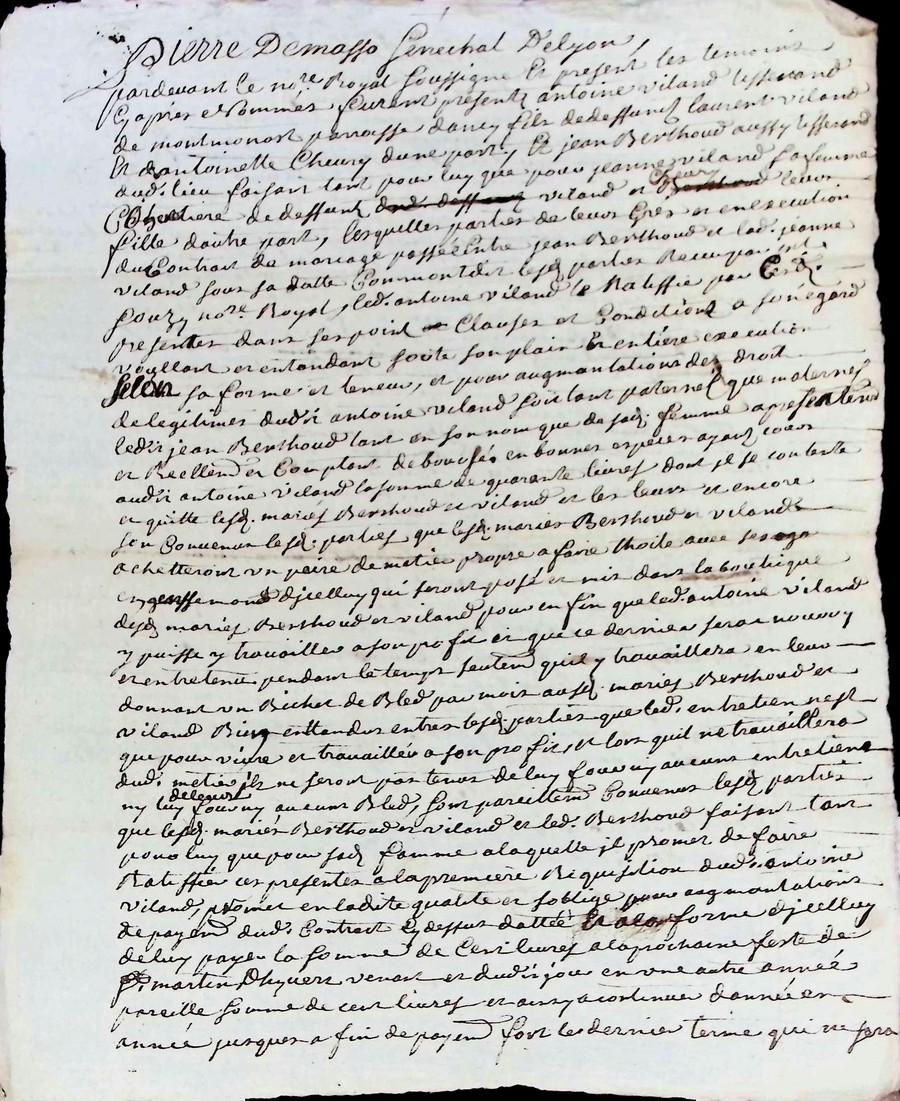 Pierre Demasso Senechal Delyon,
pardevant le nore Royal soussigne Et present les temoins
Cy apres Nommes furent presents antoine viland tisserand
de montmonost parroisse dancy fils de deffunct laurent viland
Et dantoinette Cheury dune part, Et jean Berthoud aussy tisserand
dud. lieu faisant tant pour luy que pour jeanne viland sa femme
heritiere de deffunts viland et Cheury leurs
fille dautre part, lesquelles parties de leurs Grés et en execution
du Contrat de mariage passé Entre jean Berthoud et lad. jeanne
viland sous sa datte Commont dit lesd parties Receu par
nore Royal, led. antoine viland le Ratiffie par Cesd.
presentes dans ses point Clauses et Conditions a son égard
voullant et entendant soite son plain Et entiere execution
selon sa forme et teneur, et pour augmantations des droit
de legitimes dudit antoine viland soit tant paternel que maternel
ledit jean Berthoud tant en son nom que de sad. femme a presentem
et Reellem et Comptant de bourse en bonnes especes ayant cours
audit antoine viland la somme de quarante livres dont jl se contente
et quitte lesd. mariés Berthoud et viland et les leurs et encore
son Convenus lesd. parties que lesd. mariés Berthoud et viland
achetteront un paire de metier propre a faire thoile avec ses
djcelluy qui seront posé et mis dans la boutique
desd mariés Berthoud et viland pour en fin que led. antoine viland
y puisse y travailler a son profit et que ce dernier sera nourry
et entretenu pendant le temps seulem quil y travaillera en leur
donnant un Bichet de Bled par mois ausd. mariés Berthoud et
viland Bien enttandus entres lesd parties que led. entretien nest
que pour vivre et travailler a son profit, et lors quil ne travaillera
dud. metier jls ne seront pas tenus de luy fournir aucuns entretiens
ny luy delivrer fournir aucuns Bled, sont pareillem Convenus lesd parties
que lesd. mariés Berthoud et viland et led. Berthoud faisant tant
pour luy que pour sad famme a laquelle jl promet de faire
Ratiffier ces presentes a la premiere Requisition dud. antoine
viland, promet en ladite qualité et soblige pour augmantations
de payem dud. Contract Cy dessus datté Et a la forme djcelluy
de luy payer la somme de Cent livres a la prochaine feste de
St. martin Dhyvert venant et dudit jour en une autre année
pareille somme de cent livres et ainsy a continuer dannée en
année jusques a fin de payem fort le dernier terme qui ne sera